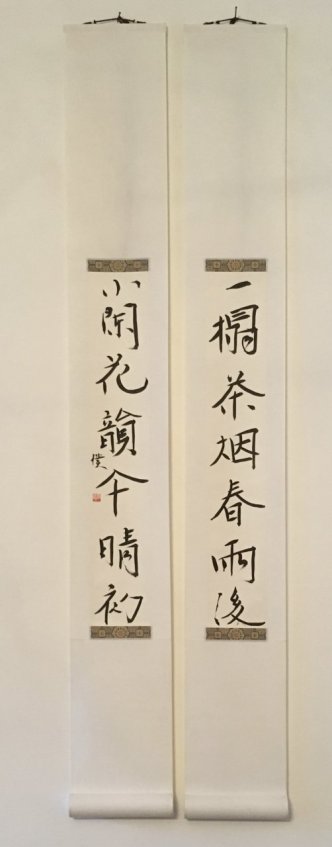 一榻茶烟春雨後
小闌花韻午晴初